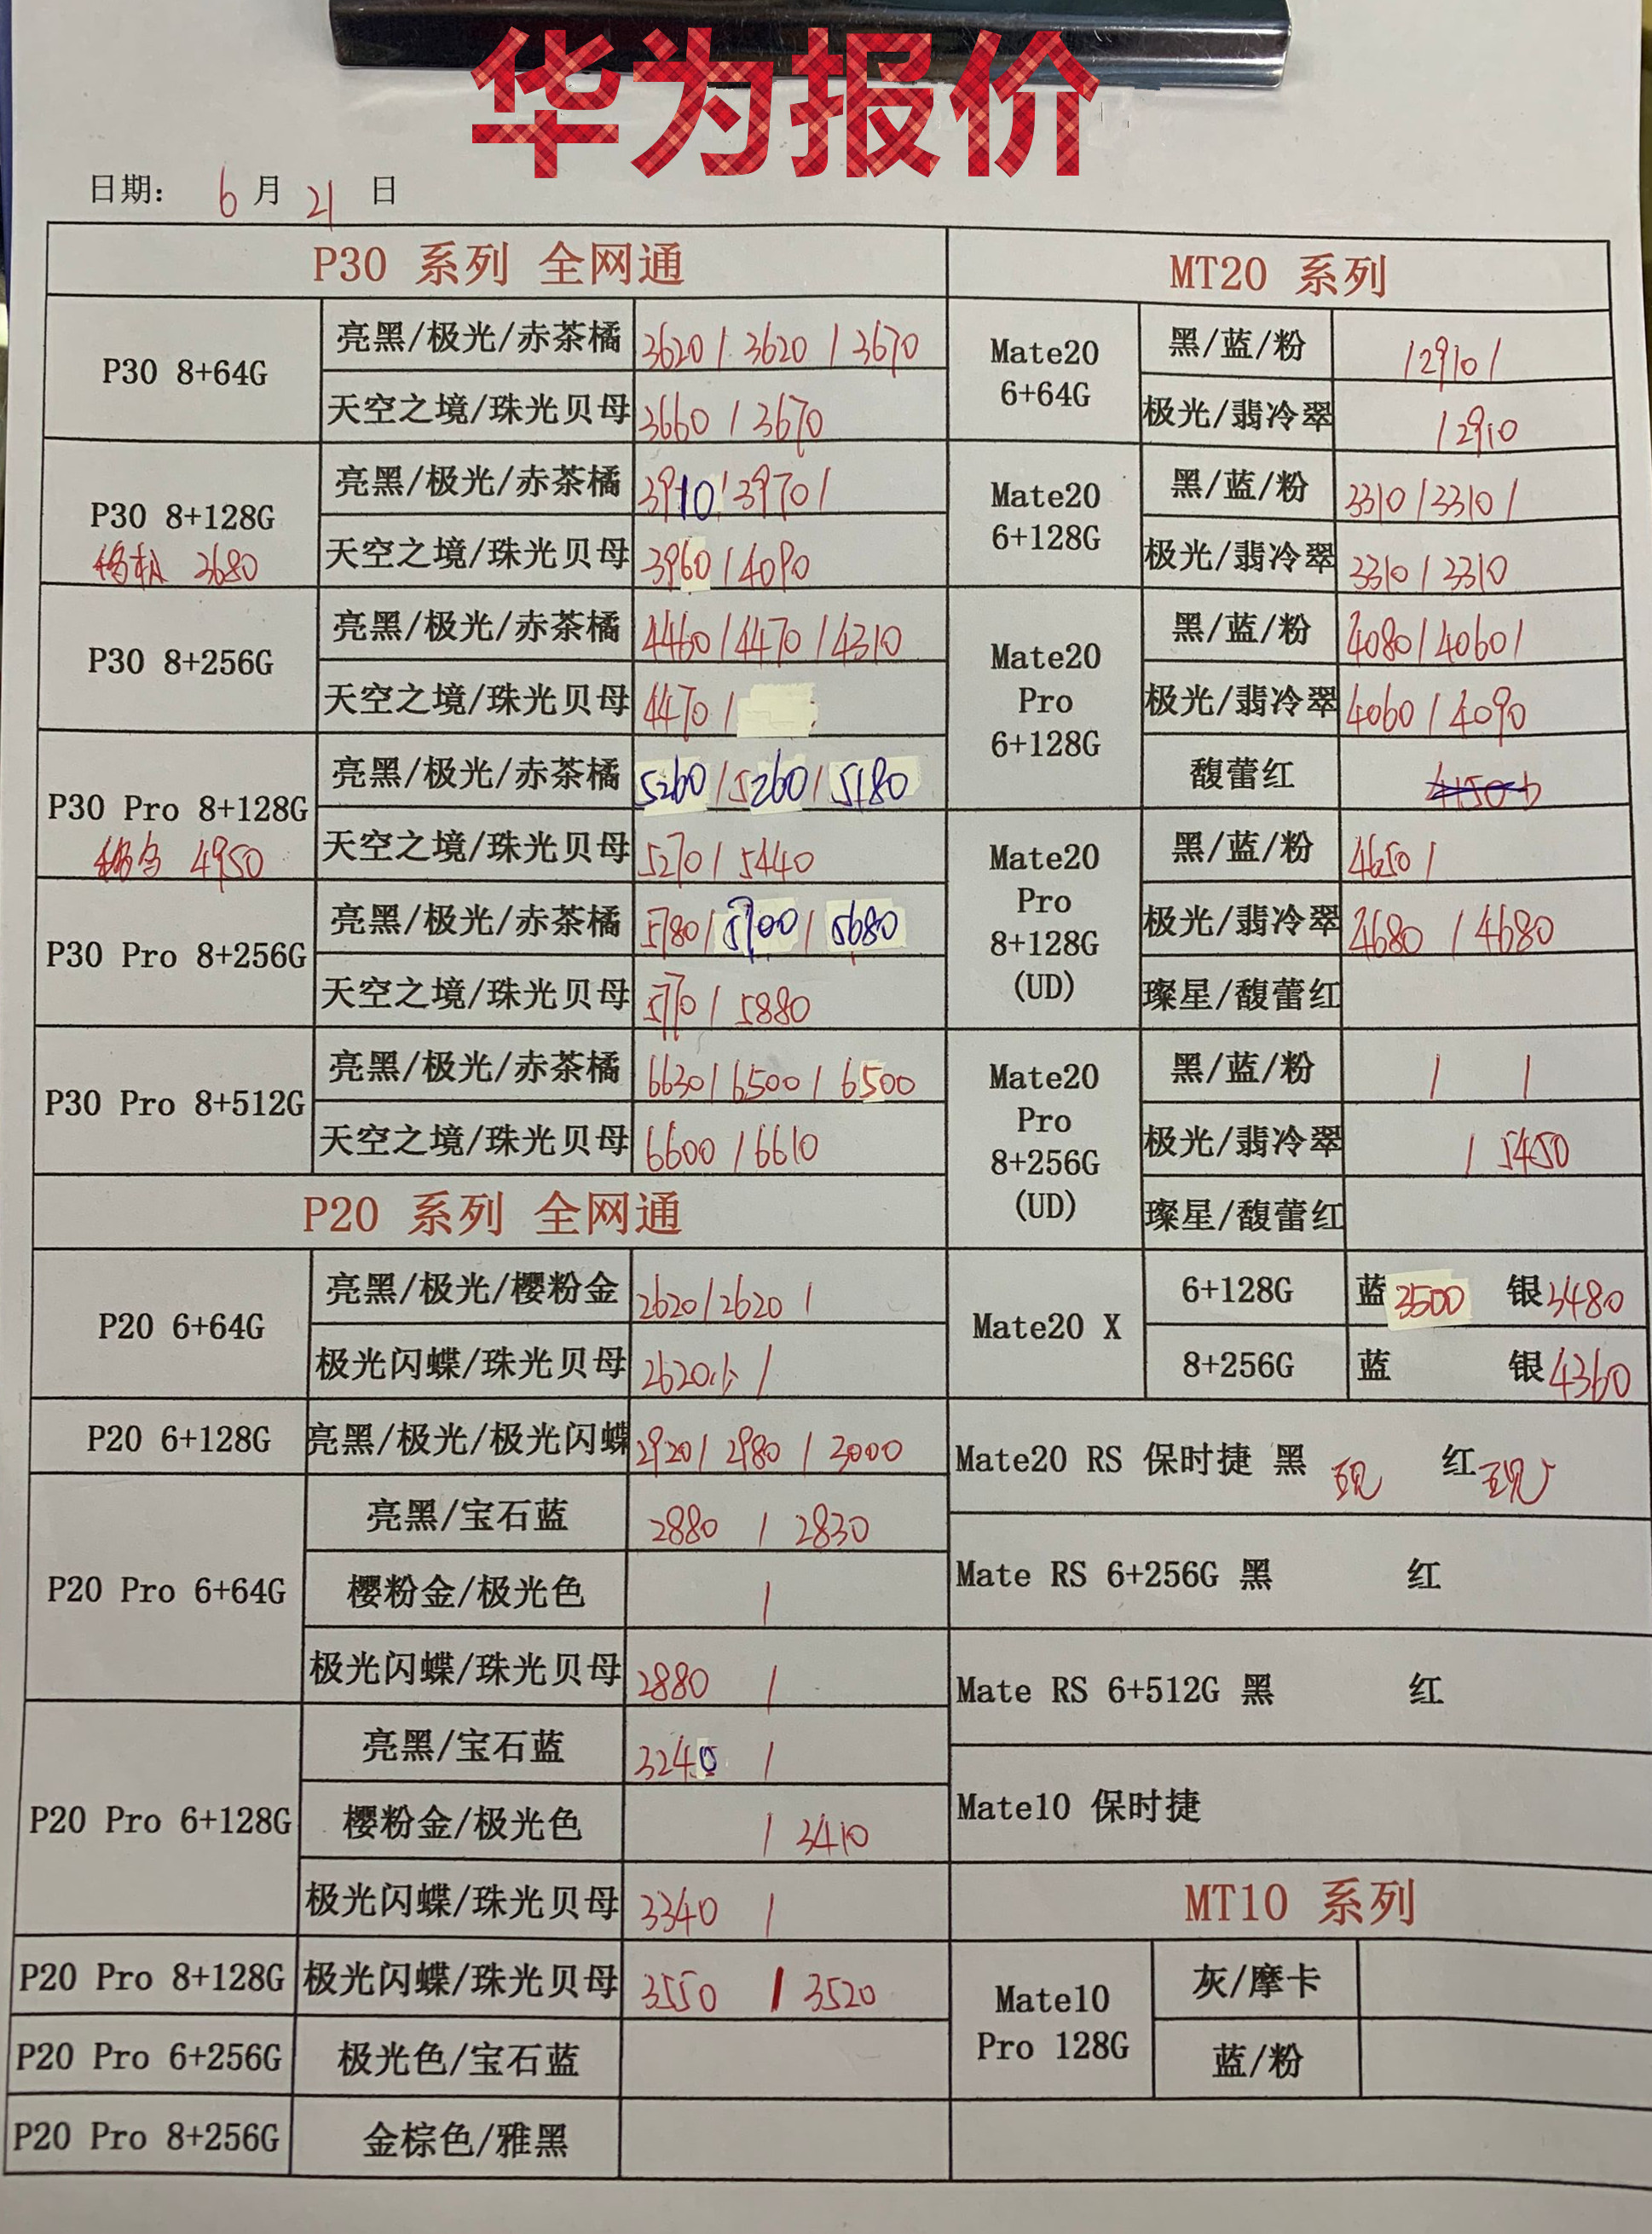 华为报价
日期： 6 月 21 日
P30 系列 全网通
P30 8+64G
亮黑/极光/赤茶橘 3620 / 3620 / 3670
天空之境/珠光贝母 3660 / 3670
P30 8+128G
3680
亮黑/极光/赤茶橘 3910 / 3970 /
天空之境/珠光贝母 3960 / 4090
P30 8+256G
亮黑/极光/赤茶橘 4460 / 4470 / 4310
天空之境/珠光贝母 4470 /
P30 Pro 8+128G
4950
亮黑/极光/赤茶橘 5260 / 5260 / 5180
天空之境/珠光贝母 5270 / 5440
P30 Pro 8+256G
亮黑/极光/赤茶橘 5780 / 5700 / 5680
天空之境/珠光贝母 5770 / 5880
P30 Pro 8+512G
亮黑/极光/赤茶橘 6630 / 6500 / 6500
天空之境/珠光贝母 6600 / 6610
P20 系列 全网通
P20 6+64G
亮黑/极光/樱粉金 2620 / 2620 /
极光闪蝶/珠光贝母 2620 /
P20 6+128G
亮黑/极光/极光闪蝶 2920 / 2980 / 3000
P20 Pro 6+64G
亮黑/宝石蓝 2880 / 2830
樱粉金/极光色 /
极光闪蝶/珠光贝母 2880 /
P20 Pro 6+128G
亮黑/宝石蓝 3240 /
樱粉金/极光色 / 3410
极光闪蝶/珠光贝母 3340 /
P20 Pro 8+128G
极光闪蝶/珠光贝母 3550 / 3520
P20 Pro 6+256G
极光色/宝石蓝
P20 Pro 8+256G
金棕色/雅黑
MT20 系列
Mate20
6+64G
黑/蓝/粉 / 2910 /
极光/翡冷翠 / 2910
Mate20
6+128G
黑/蓝/粉 3310 / 3310 /
极光/翡冷翠 3310 / 3310
Mate20
Pro
6+128G
黑/蓝/粉 4080 / 4060 /
极光/翡冷翠 4060 / 4090
馥蕾红
Mate20
Pro
8+128G
(UD)
黑/蓝/粉 4650 /
极光/翡冷翠 4680 / 4680
璨星/馥蕾红
Mate20
Pro
8+256G
(UD)
黑/蓝/粉 / /
极光/翡冷翠 / 5450
璨星/馥蕾红
Mate20 X
6+128G 蓝 3500 银 3480
8+256G 蓝 银 4360
Mate20 RS 保时捷 黑 现 红 现
Mate RS 6+256G 黑 红
Mate RS 6+512G 黑 红
Mate10 保时捷
MT10 系列
Mate10
Pro 128G
灰/摩卡
蓝/粉